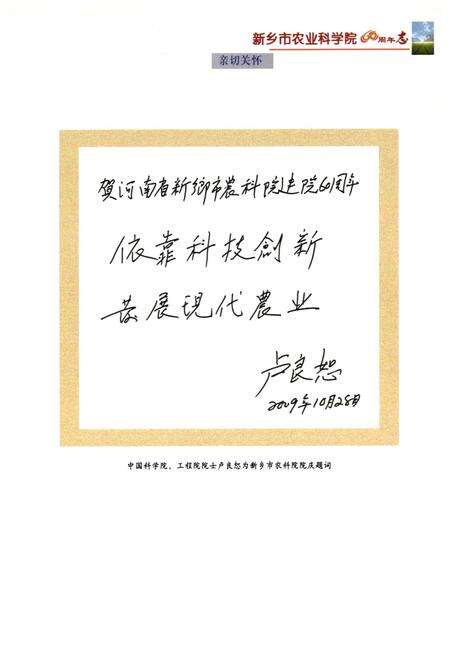 新乡市农业科学院60周年志
亲切关怀
贺河南省新鄉市農科院建院60周年
依靠科技創新
发展現代農业
卢良恕
2009年10月28日
中国科学院、工程院院士卢良恕为新乡市农科院院庆题词